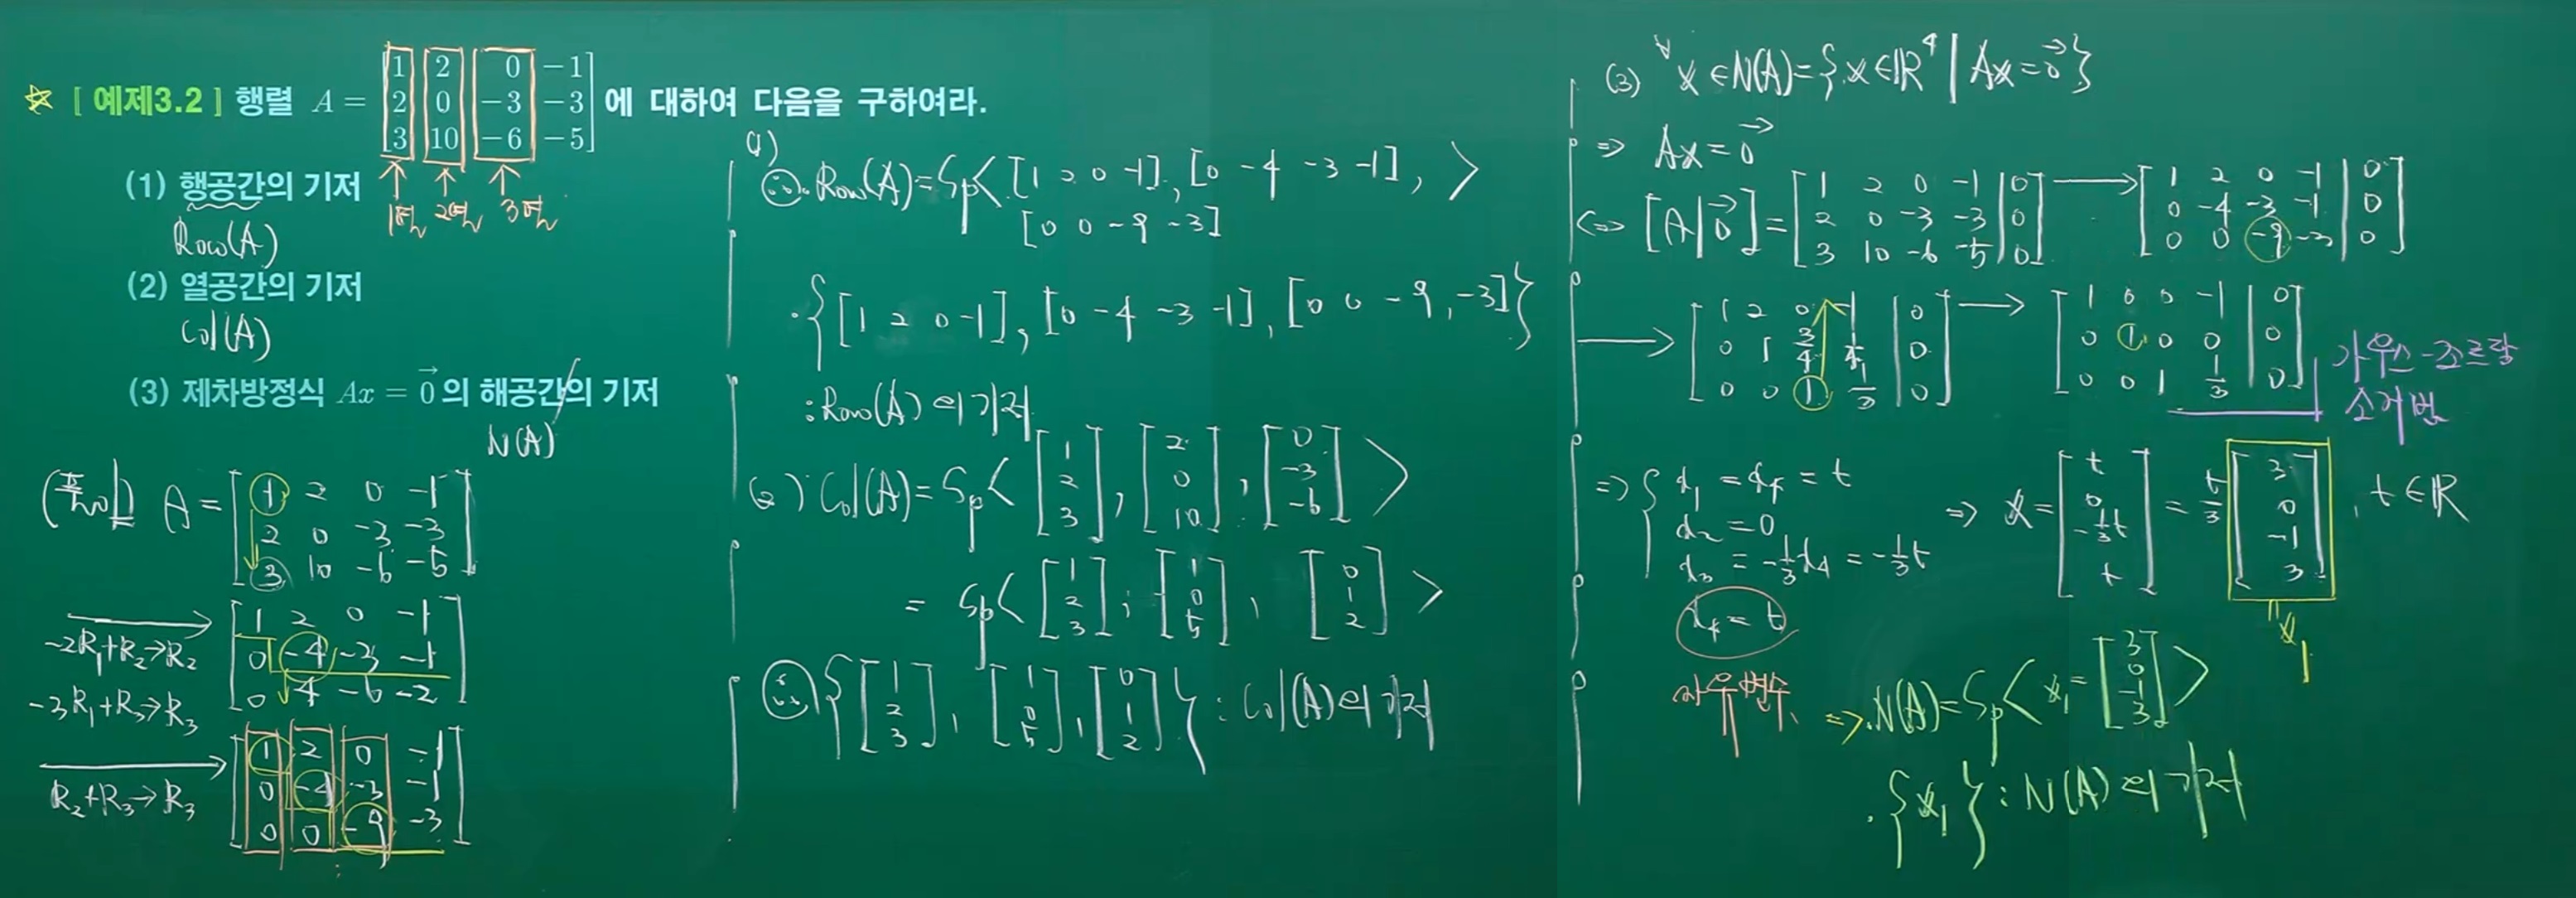 ☆ [ 예제3.2 ] 행렬 A = [1 2 0 −1; 2 0 −3 −3; 3 10 −6 −5] 에 대하여 다음을 구하여라.
1열 2열 3열
(1) 행공간의 기저
Row(A)
(2) 열공간의 기저
Col(A)
(3) 제차방정식 Ax = 0⃗ 의 해공간의 기저
N(A)
(풀이) A = [1 2 0 −1; 2 0 −3 −3; 3 10 −6 −5]
−2R₁+R₂→R₂
−3R₁+R₃→R₃
[1 2 0 −1; 0 −4 −3 −1; 0 4 −6 −2]
R₂+R₃→R₃
[1 2 0 −1; 0 −4 −3 −1; 0 0 −9 −3]
(1)
∴ Row(A) = Sp< [1 2 0 −1], [0 −4 −3 −1], [0 0 −9 −3] >
·{[1 2 0 −1], [0 −4 −3 −1], [0 0 −9, −3]}
: Row(A)의 기저
(2) Col(A) = Sp< [1; 2; 3], [2; 0; 10], [0; −3; −6] >
= Sp< [1; 2; 3], [1; 0; 5], [0; 1; 2] >
∴ {[1; 2; 3], [1; 0; 5], [0; 1; 2]} : Col(A)의 기저
(3) ∀x ∈ N(A) = {x ∈ ℝ⁴ | Ax = 0⃗}
⇒ Ax = 0⃗
⇔ [A | 0⃗] = [1 2 0 −1 | 0; 2 0 −3 −3 | 0; 3 10 −6 −5 | 0] → [1 2 0 −1 | 0; 0 −4 −3 −1 | 0; 0 0 −9 −3 | 0]
→ [1 2 0 −1 | 0; 0 1 3/4 1/4 | 0; 0 0 1 1/3 | 0] → [1 0 0 −1 | 0; 0 1 0 0 | 0; 0 0 1 1/3 | 0]
가우스-조르당
소거법
⇒ { x₁ = x₄ = t
x₂ = 0
x₃ = −1/3 x₄ = −1/3 t
x₄ = t
자유변수
⇒ x = [t; 0; −1/3 t; t] = t/3 [3; 0; −1; 3], t ∈ ℝ
" x₁
⇒ N(A) = Sp< x₁ = [3; 0; −1; 3] >
·{x₁} : N(A)의 기저